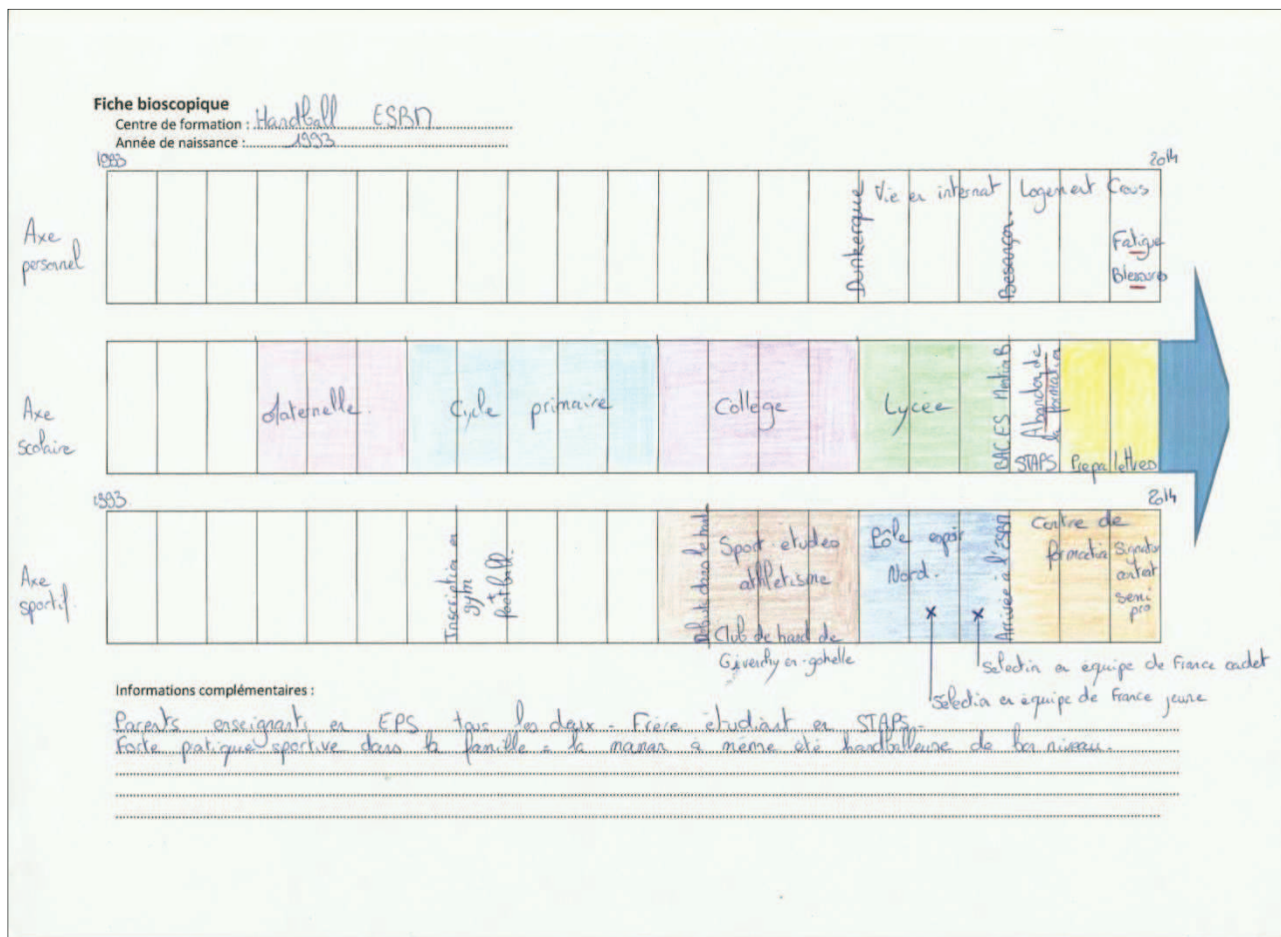 Fiche bioscopique
Centre de formation : Handball ESBM
Année de naissance : 1993
1993
2014
Axe
personnel
Dunkerque
Vie en internat
Besançon.
Logement Crous
Fatigue
Blessures
Axe
scolaire
Maternelle.
Cycle primaire
Collège
Lycée
BAC ES Mention B
STAPS
Abandon de
la formation
Prepa lettres
1993
2014
Axe
sportif.
Inscription en
gym
+
football.
Débuts dans le hand
Sport études
athlétisme
Club de hand de
Givenchy en-gohelle
Pôle espoir
Nord.
Arrivée à l'ESBM
Centre de
formation
Signature
contrat
semi
pro
Selection en équipe de France cadet
Selection en équipe de France jeune
Informations complémentaires :
Parents enseignants en EPS tous les deux - Frère étudiant en STAPS.
Forte pratique sportive dans la famille = la maman a même été handballeuse de bon niveau.